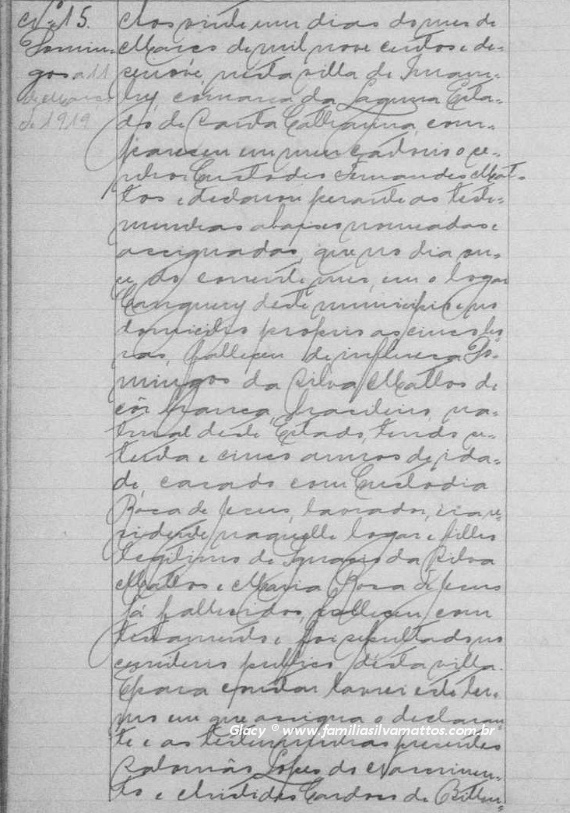 Nº 15.
Domin-
gos a 11
de Março
de 1919
Aos vinte um dias do mes de
Março de mil nove centos e de-
senove, nesta villa de Imaru-
hy, comarca da Laguna Esta-
do de Santa Catharina, com-
pareceu em meu cartorio o ge-
Custodio Fernandes Mat-
tos e declarou perante as teste-
munhas abaixo nomeadas e
assignadas, que no dia on-
ze do corrente mes, em o logar
Canguery deste municipio e no
domicilio proprio as cinco ho-
ras, falleceu de influenza Do-
mingos da Silva Mattos de
côr branca, brasileiro, na-
tural deste Estado, tendo
e cinco annos de ida-
de, casado com Custodia
Rosa de Jesus, lavrador, era re-
sidente naquelle logar e filho
legitimo de Ignacio da Silva
Mattos e Maria Rosa de Jesus
já fallecidos, falleceu com
testamento e foi sepultado no
cemiterio publico desta villa.
E para constar lavrei este ter-
mo em que assigna o declaran-
te e as testemunhas presentes
Salomão Lopes do Nascimen-
to e Aristides Cardoso de Bitten-
Glacy © www.familiasilvamattos.com.br